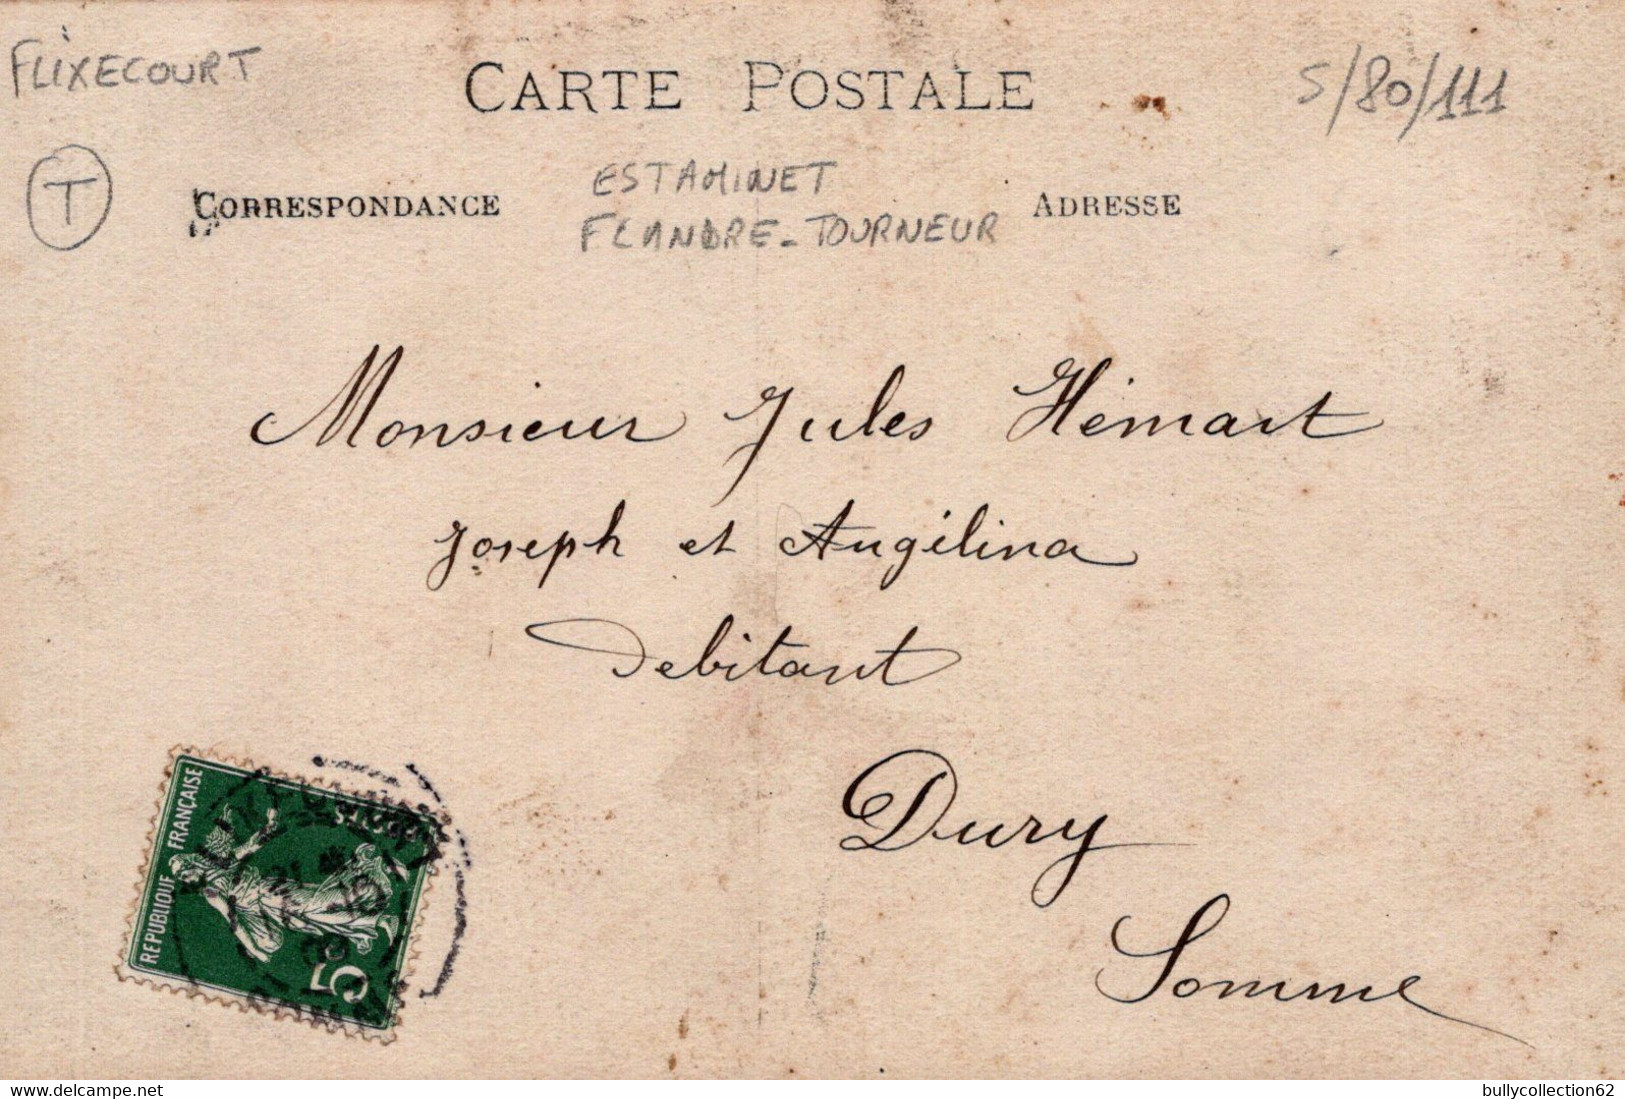 FLIXECOURT
CARTE POSTALE
S/80/111
T
CORRESPONDANCE
ESTAMINET
FLANDRE-TOURNEUR
ADRESSE
Monsieur Jules Hémart
Joseph et Angélina
Debitant
Dury
Somme
REPUBLIQUE FRANÇAISE
POSTES
5
delcampe.net
bullycollection62